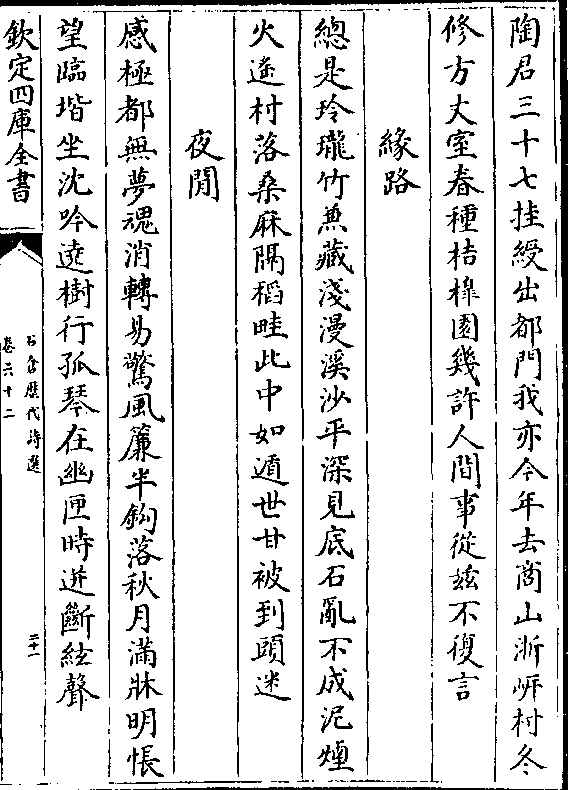 陶君三十七挂綬出都門我亦今年去商山淅岍村冬
修方丈室春種桔橰園幾許人間事從玆不復言
緣路
總是玲瓏竹兼藏淺漫溪沙平深見底石亂不成泥煙
火遥村落桑麻隔稻畦此中如遁世甘被到頭迷
夜閒
感極都無夢魂消轉易驚風簾半鈎落秋月滿牀明悵
望臨堦坐沈吟遶樹行孤琴在幽匣時迸斷絃聲
欽定四庫全書
石倉歷代詩選
卷六十二
二十一